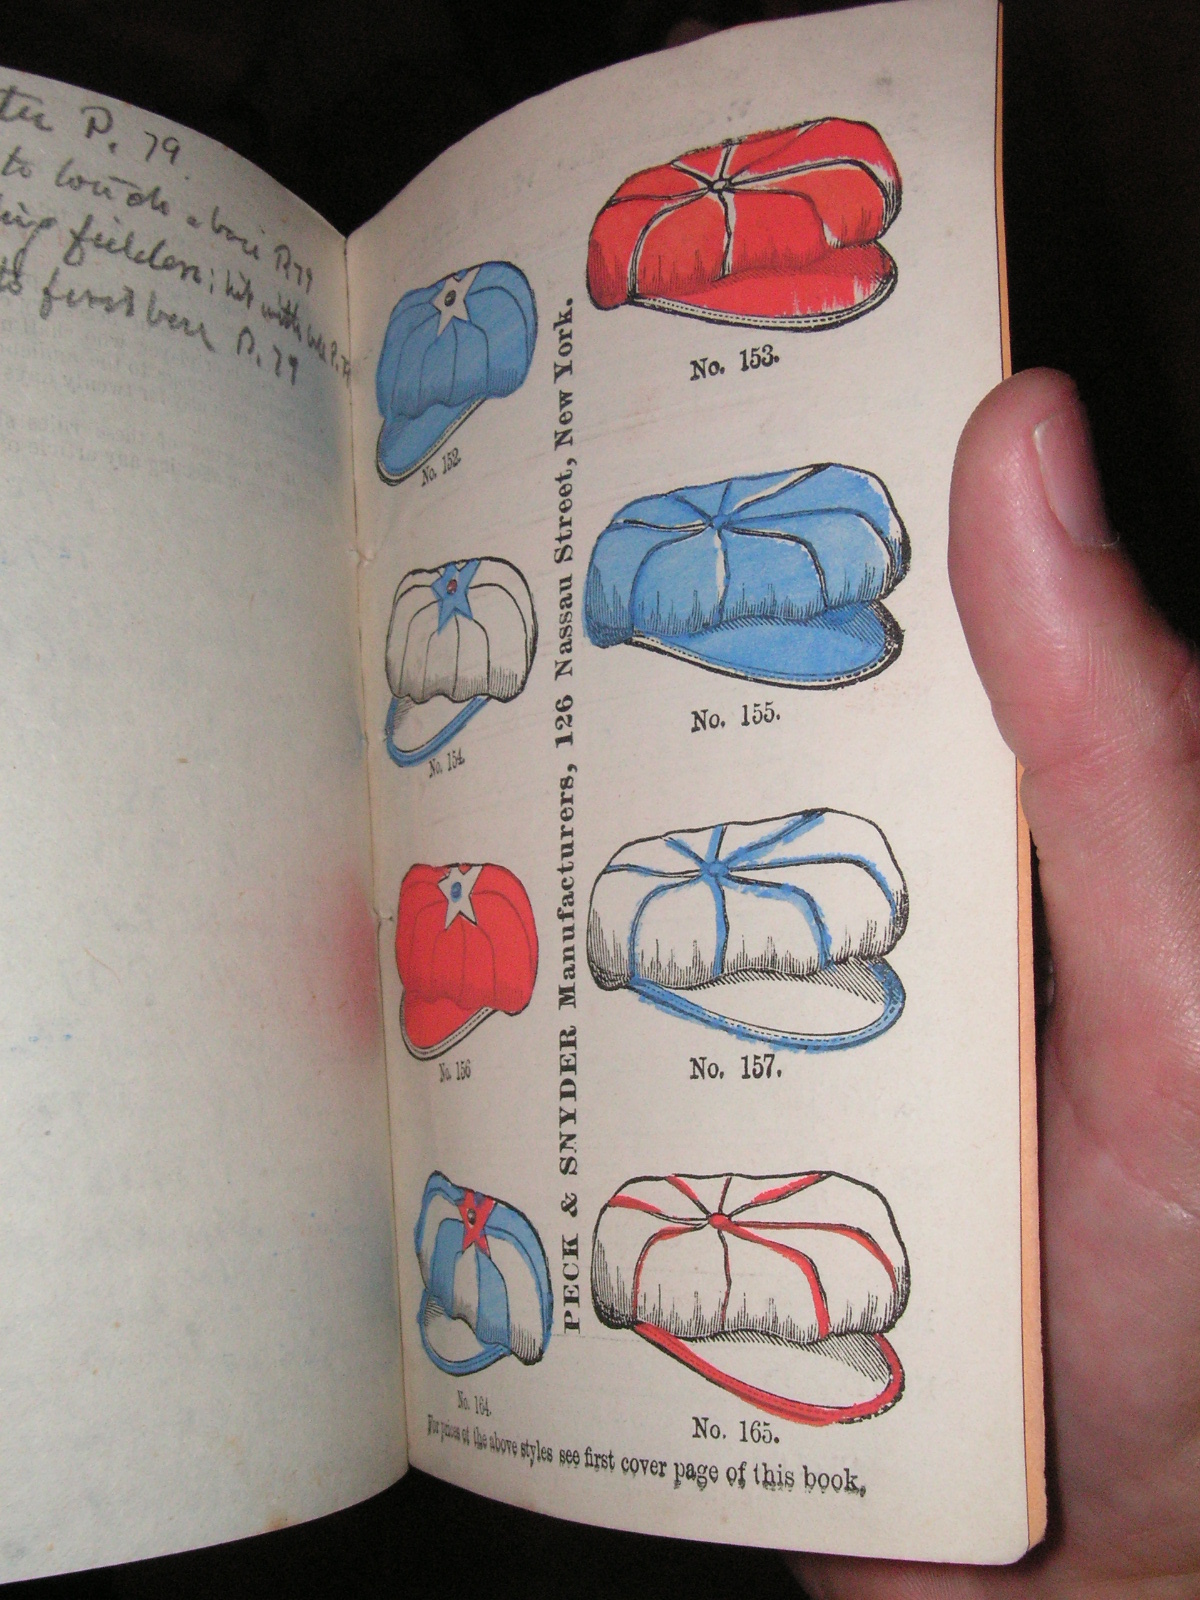 P. 79
to
P. 79
fielders; hit with
to first base P. 79
No. 152.
No. 153.
No. 154.
No. 155.
No. 156
No. 157.
No. 164.
No. 165.
PECK & SNYDER Manufacturers, 126 Nassau Street, New York.
For prices of the above styles see first cover page of this book,